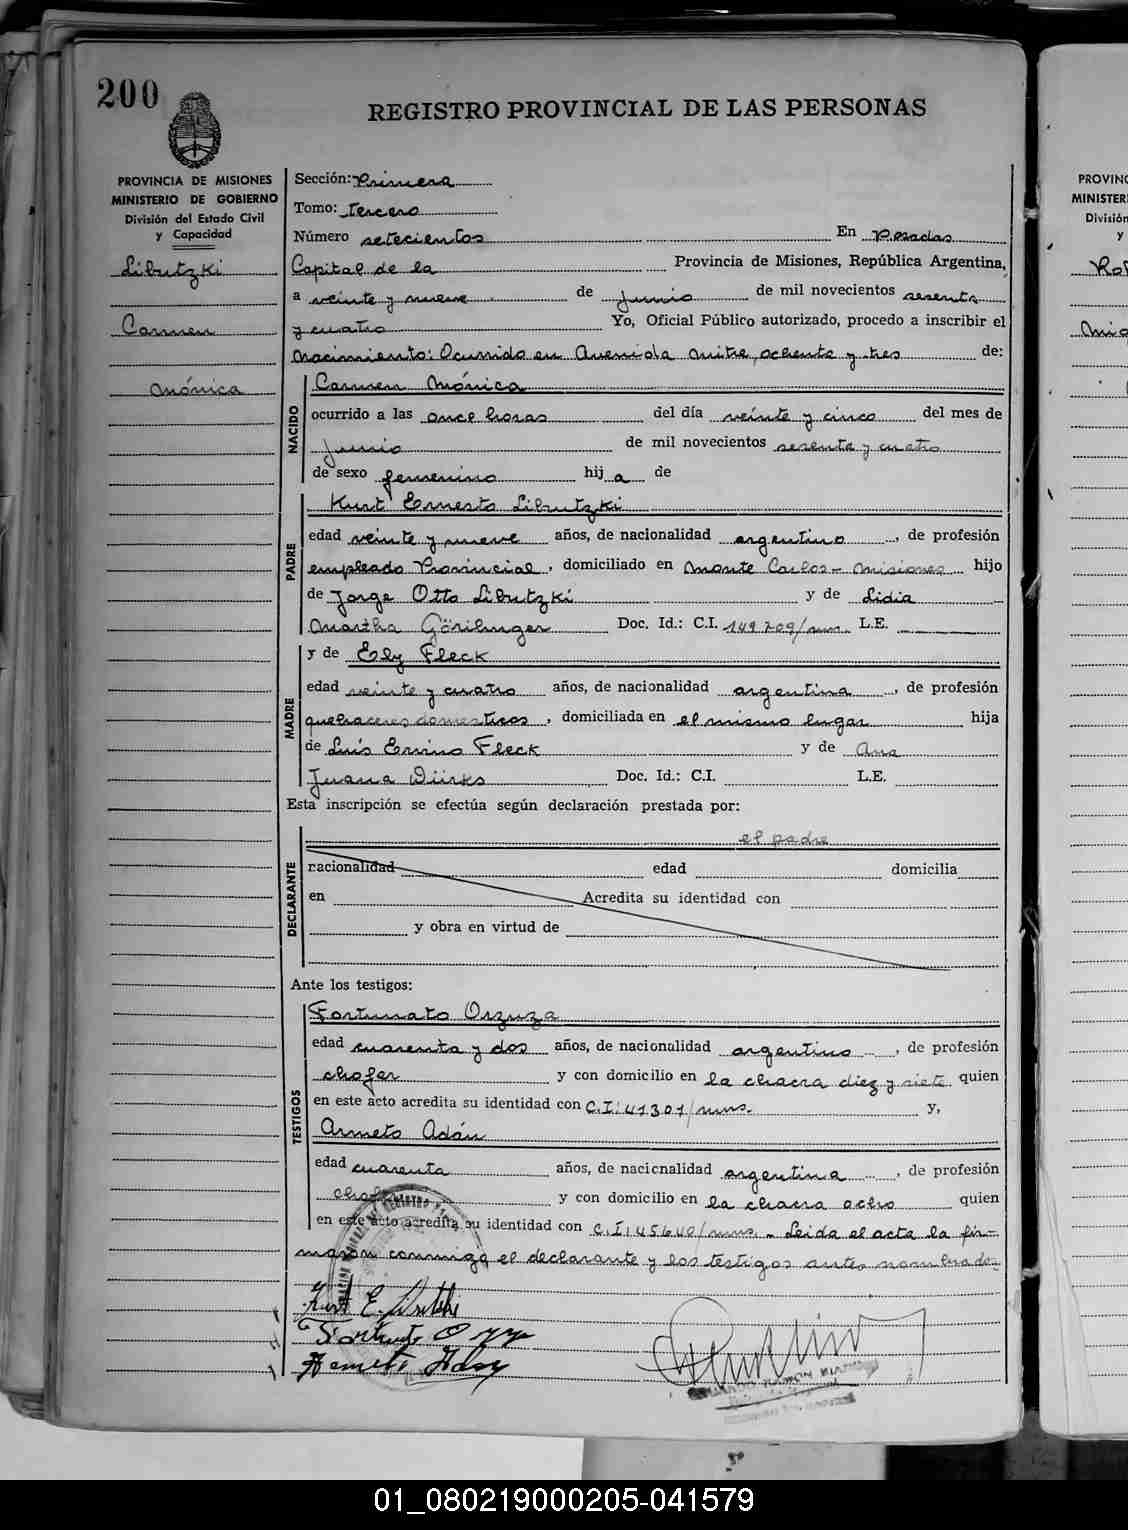 200
REGISTRO PROVINCIAL DE LAS PERSONAS
PROVINCIA DE MISIONES
MINISTERIO DE GOBIERNO
División del Estado Civil
y Capacidad
Libutzki
Carmen
Mónica
Sección: Primera
Tomo: Tercero
Número setecientos En Posadas
Capital de la Provincia de Misiones, República Argentina,
a veinte y nueve de Junio de mil novecientos sesenta
y cuatro Yo, Oficial Público autorizado, procedo a inscribir el
nacimiento: Ocurrido en Avenida Mitre, ochenta y tres de:
NACIDO
Carmen Mónica
ocurrido a las once horas del día veinte y cinco del mes de
Junio de mil novecientos sesenta y cuatro
de sexo femenino hija de
PADRE
Kurt Ernesto Libutzki
edad veinte y nueve años, de nacionalidad argentino, de profesión
empleado Provincial, domiciliado en Monte Carlos - Misiones hijo
de Jorge Otto Libutzki y de Lidia
Martha Doc. Id.: C.I. 149209/mns. L.E.
MADRE
y de Ely Fleck
edad veinte y cuatro años, de nacionalidad argentina, de profesión
quehaceres domesticos, domiciliada en el mismo lugar hija
de Luis Ervino Fleck y de Ana
Juana Dürks Doc. Id.: C.I. L.E.
Esta inscripción se efectúa según declaración prestada por:
DECLARANTE
el padre
nacionalidad edad domicilia
en Acredita su identidad con
y obra en virtud de
Ante los testigos:
TESTIGOS
Fortunato Orzuza
edad cuarenta y dos años, de nacionalidad argentino, de profesión
chofer y con domicilio en la chacra diez y siete quien
en este acto acredita su identidad con C.I: 41301/mns. y,
Armeto Adán
edad cuarenta años, de nacionalidad argentina, de profesión
chofer y con domicilio en la chacra ocho quien
en este acto acredita su identidad con C.I: 45640/mns. - Leida el acta la fir-
maron conmigo el declarante y los testigos antes nombrados
Kurt E. Libutzki
PROVINC
MINISTER
División
y
01_080219000205-041579